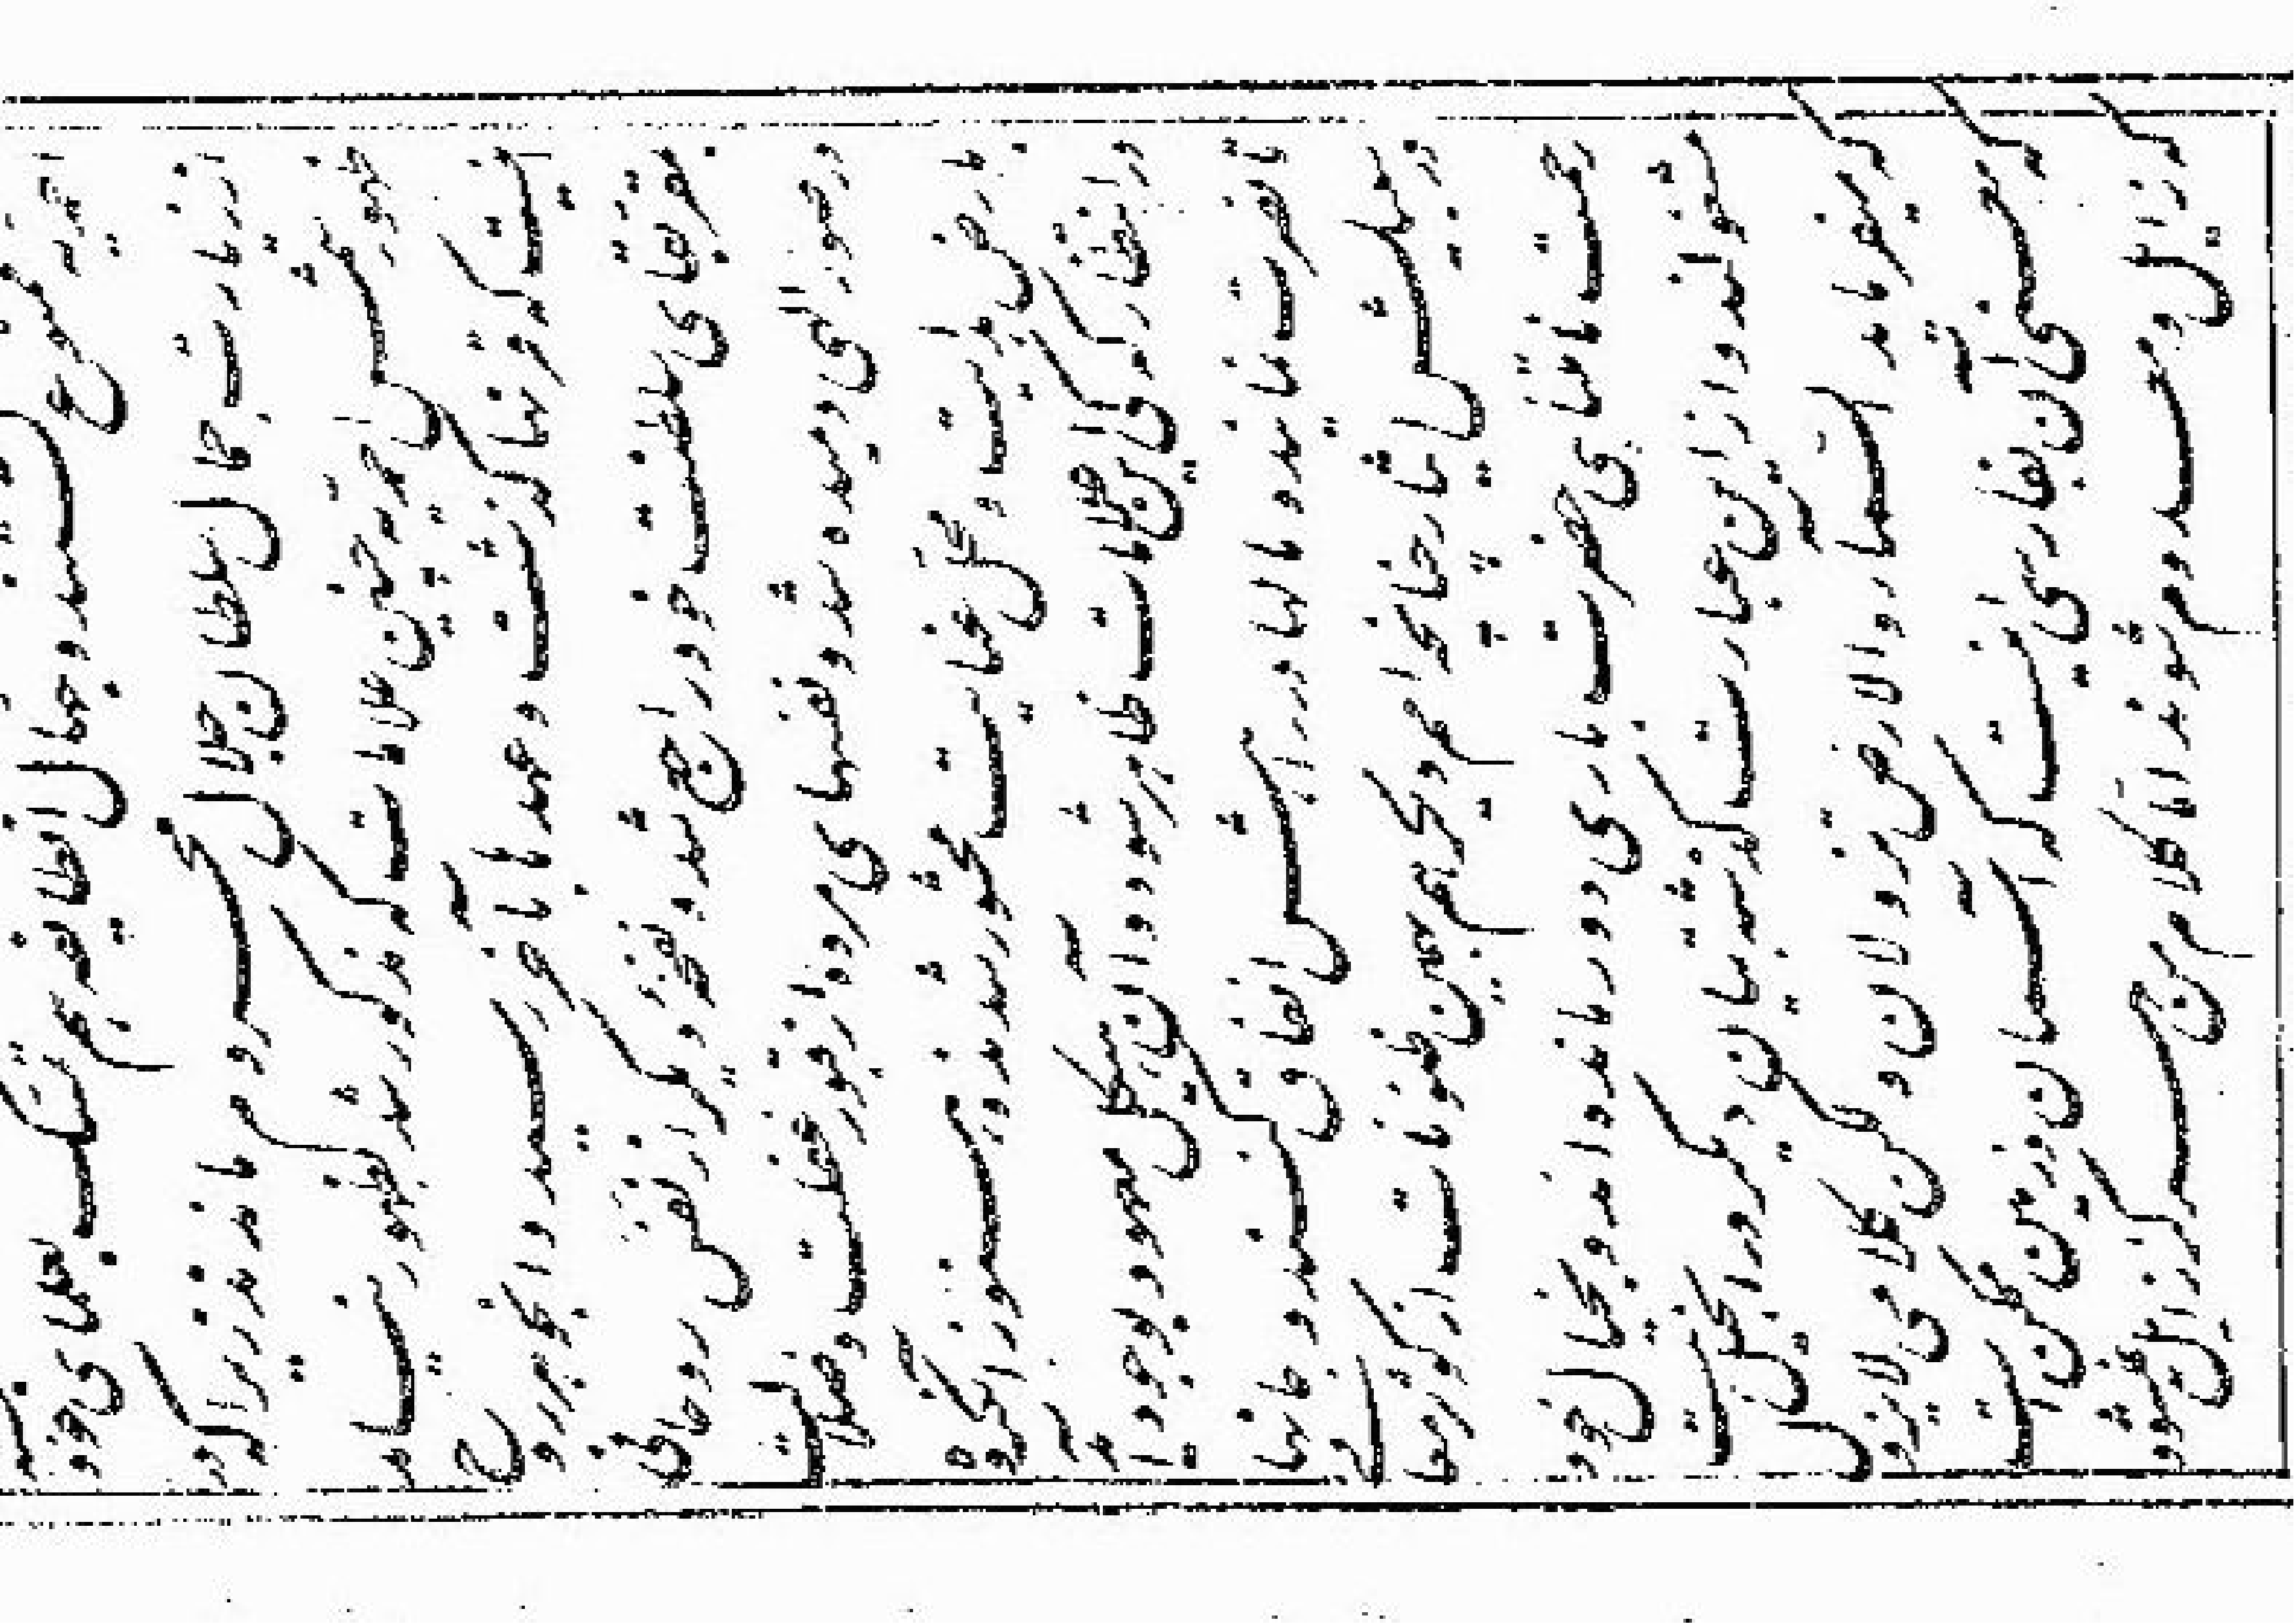 ممنوع شدند و جهال انطائفه هم تمسک بعلمای خود
از زیارت جمال سلطان جلال محروم ماندند زیرا که در
ظهور شمس احمدیه چنین علامات که مذکور شد بظهور نیامد
اینست که قرنها گذشت و عهدها بآخر رسید و آن جوهر روح
بمقر بقای سلطنت خود راجع شد و نفخه دیگر از نفس روحانی
در صور الهی دمیده شد و نفسهای مرده از قبور غفلت و ضلالت
بارض هدایت و محل عنایت محشور شدند و هنوز آن گروه
در انتظار که کی این علامات ظاهر شود و آن هیکل معهود بوجود آید
تا نصرت نمایند و مالها در راهش انفاق کنند و جانها
در سبیلش ایثار چنانچه امم دیگر هم بهمین ظنونات از کوثر معانی
رحمت نامتناهی حضرت باری دور مانده اند و بخیال خود
مشغولند و از این عبارت گذشته بیان دیگر در انجیل هست
که میفرماید السماء و الارض تزولان ولکن کلامی لا یزول
که معنی آن بفارسی اینست که آسمان و زمین ممکن است
که زائل و معدوم شوند اما کلام من هرگز زائل نشود